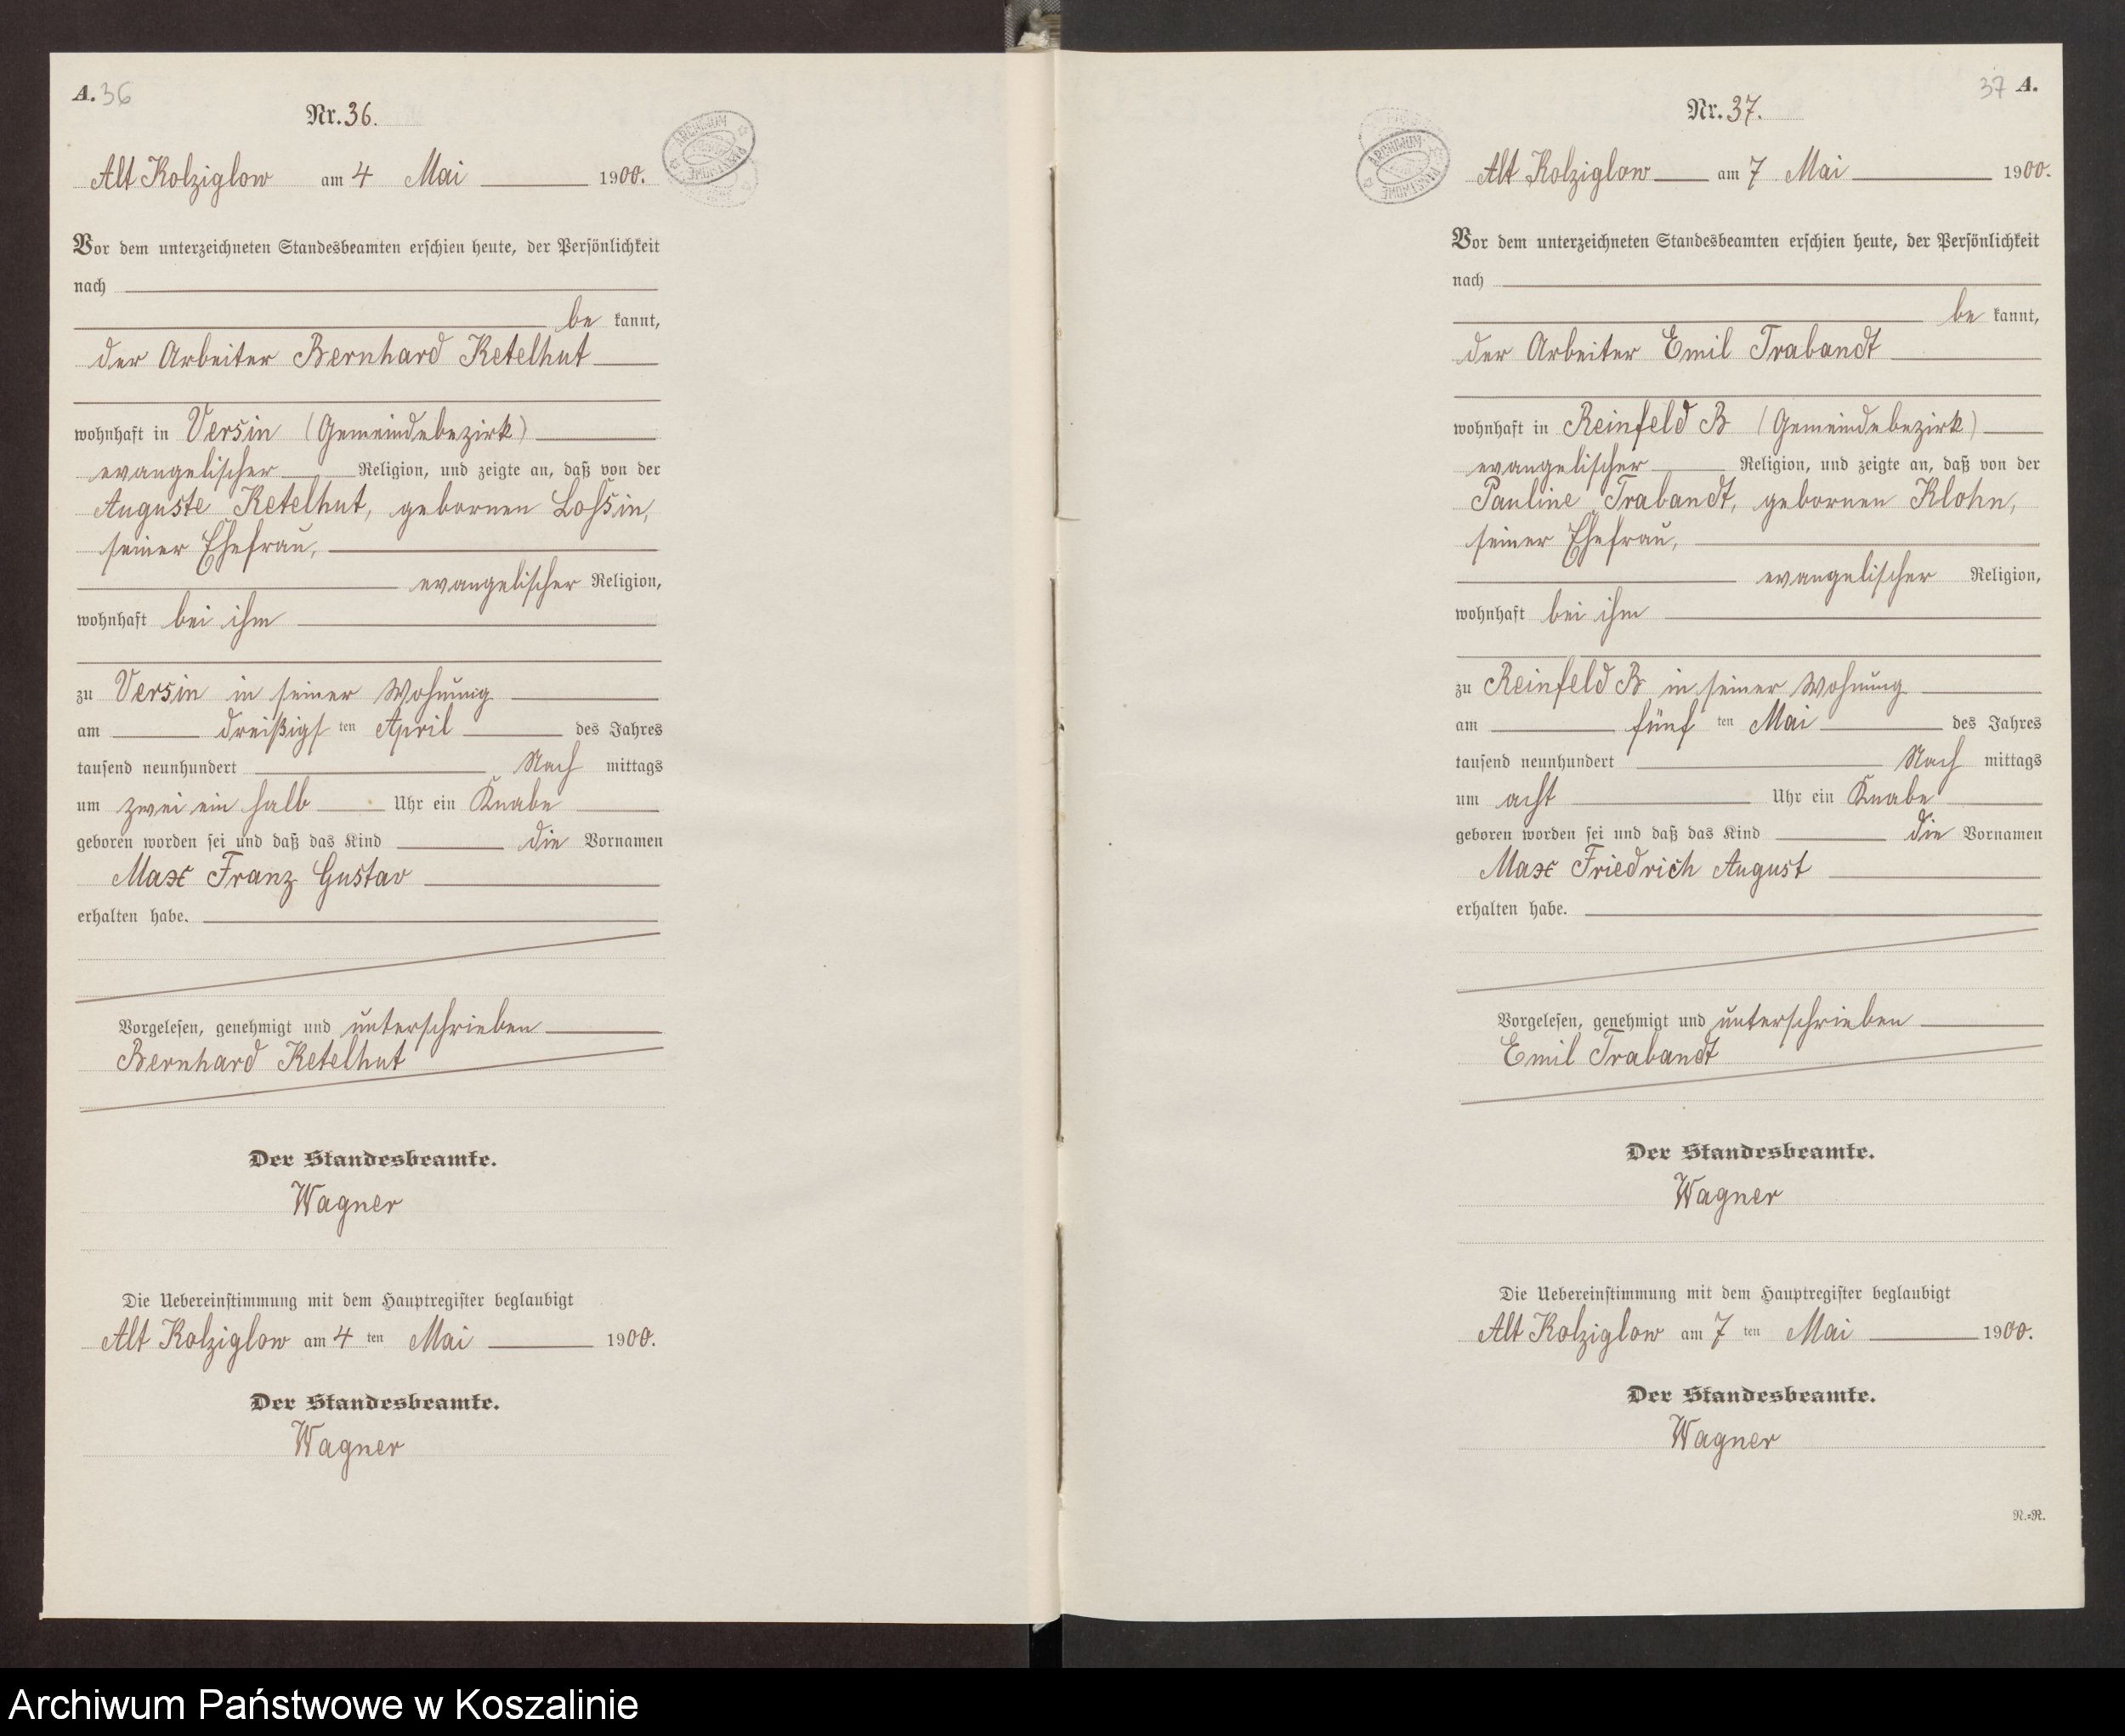 A. 36
Nr. 36.
Alt Kolziglow am 4 Mai 1900.
Vor dem unterzeichneten Standesbeamten erschien heute, der Persönlichkeit
nach
be kannt,
der Arbeiter Bernhard Ketelhut
wohnhaft in Versin (Gemeindebezirk)
evangelischer Religion, und zeigte an, daß von der
Auguste Ketelhut, gebornen Lossin,
seiner Ehefrau,
evangelischer Religion,
wohnhaft bei ihm
zu Versin in seiner Wohnung
am dreißigs ten April des Jahres
tausend neunhundert Nach mittags
um zwei ein halb Uhr ein Knabe
geboren worden sei und daß das Kind die Vornamen
Max Franz Gustav
erhalten habe.
Vorgelesen, genehmigt und unterschrieben
Bernhard Ketelhut
Der Standesbeamte.
Wagner
Die Uebereinstimmung mit dem Hauptregister beglaubigt
Alt Kolziglow am 4 ten Mai 1900.
Der Standesbeamte.
Wagner
ARCHIWUM PAŃSTWOWE
37 A.
Nr. 37.
Alt Kolziglow am 7 Mai 1900.
Vor dem unterzeichneten Standesbeamten erschien heute, der Persönlichkeit
nach
be kannt,
der Arbeiter Emil Trabandt
wohnhaft in Reinfeld B (Gemeindebezirk)
evangelischer Religion, und zeigte an, daß von der
Pauline Trabandt, gebornen Klohn,
seiner Ehefrau,
evangelischer Religion,
wohnhaft bei ihm
zu Reinfeld B in seiner Wohnung
am fünf ten Mai des Jahres
tausend neunhundert Nach mittags
um acht Uhr ein Knabe
geboren worden sei und daß das Kind die Vornamen
Max Friedrich August
erhalten habe.
Vorgelesen, genehmigt und unterschrieben
Emil Trabandt
Der Standesbeamte.
Wagner
Die Uebereinstimmung mit dem Hauptregister beglaubigt
Alt Kolziglow am 7 ten Mai 1900.
Der Standesbeamte.
Wagner
N.=R.
ARCHIWUM PAŃSTWOWE
Archiwum Państwowe w Koszalinie